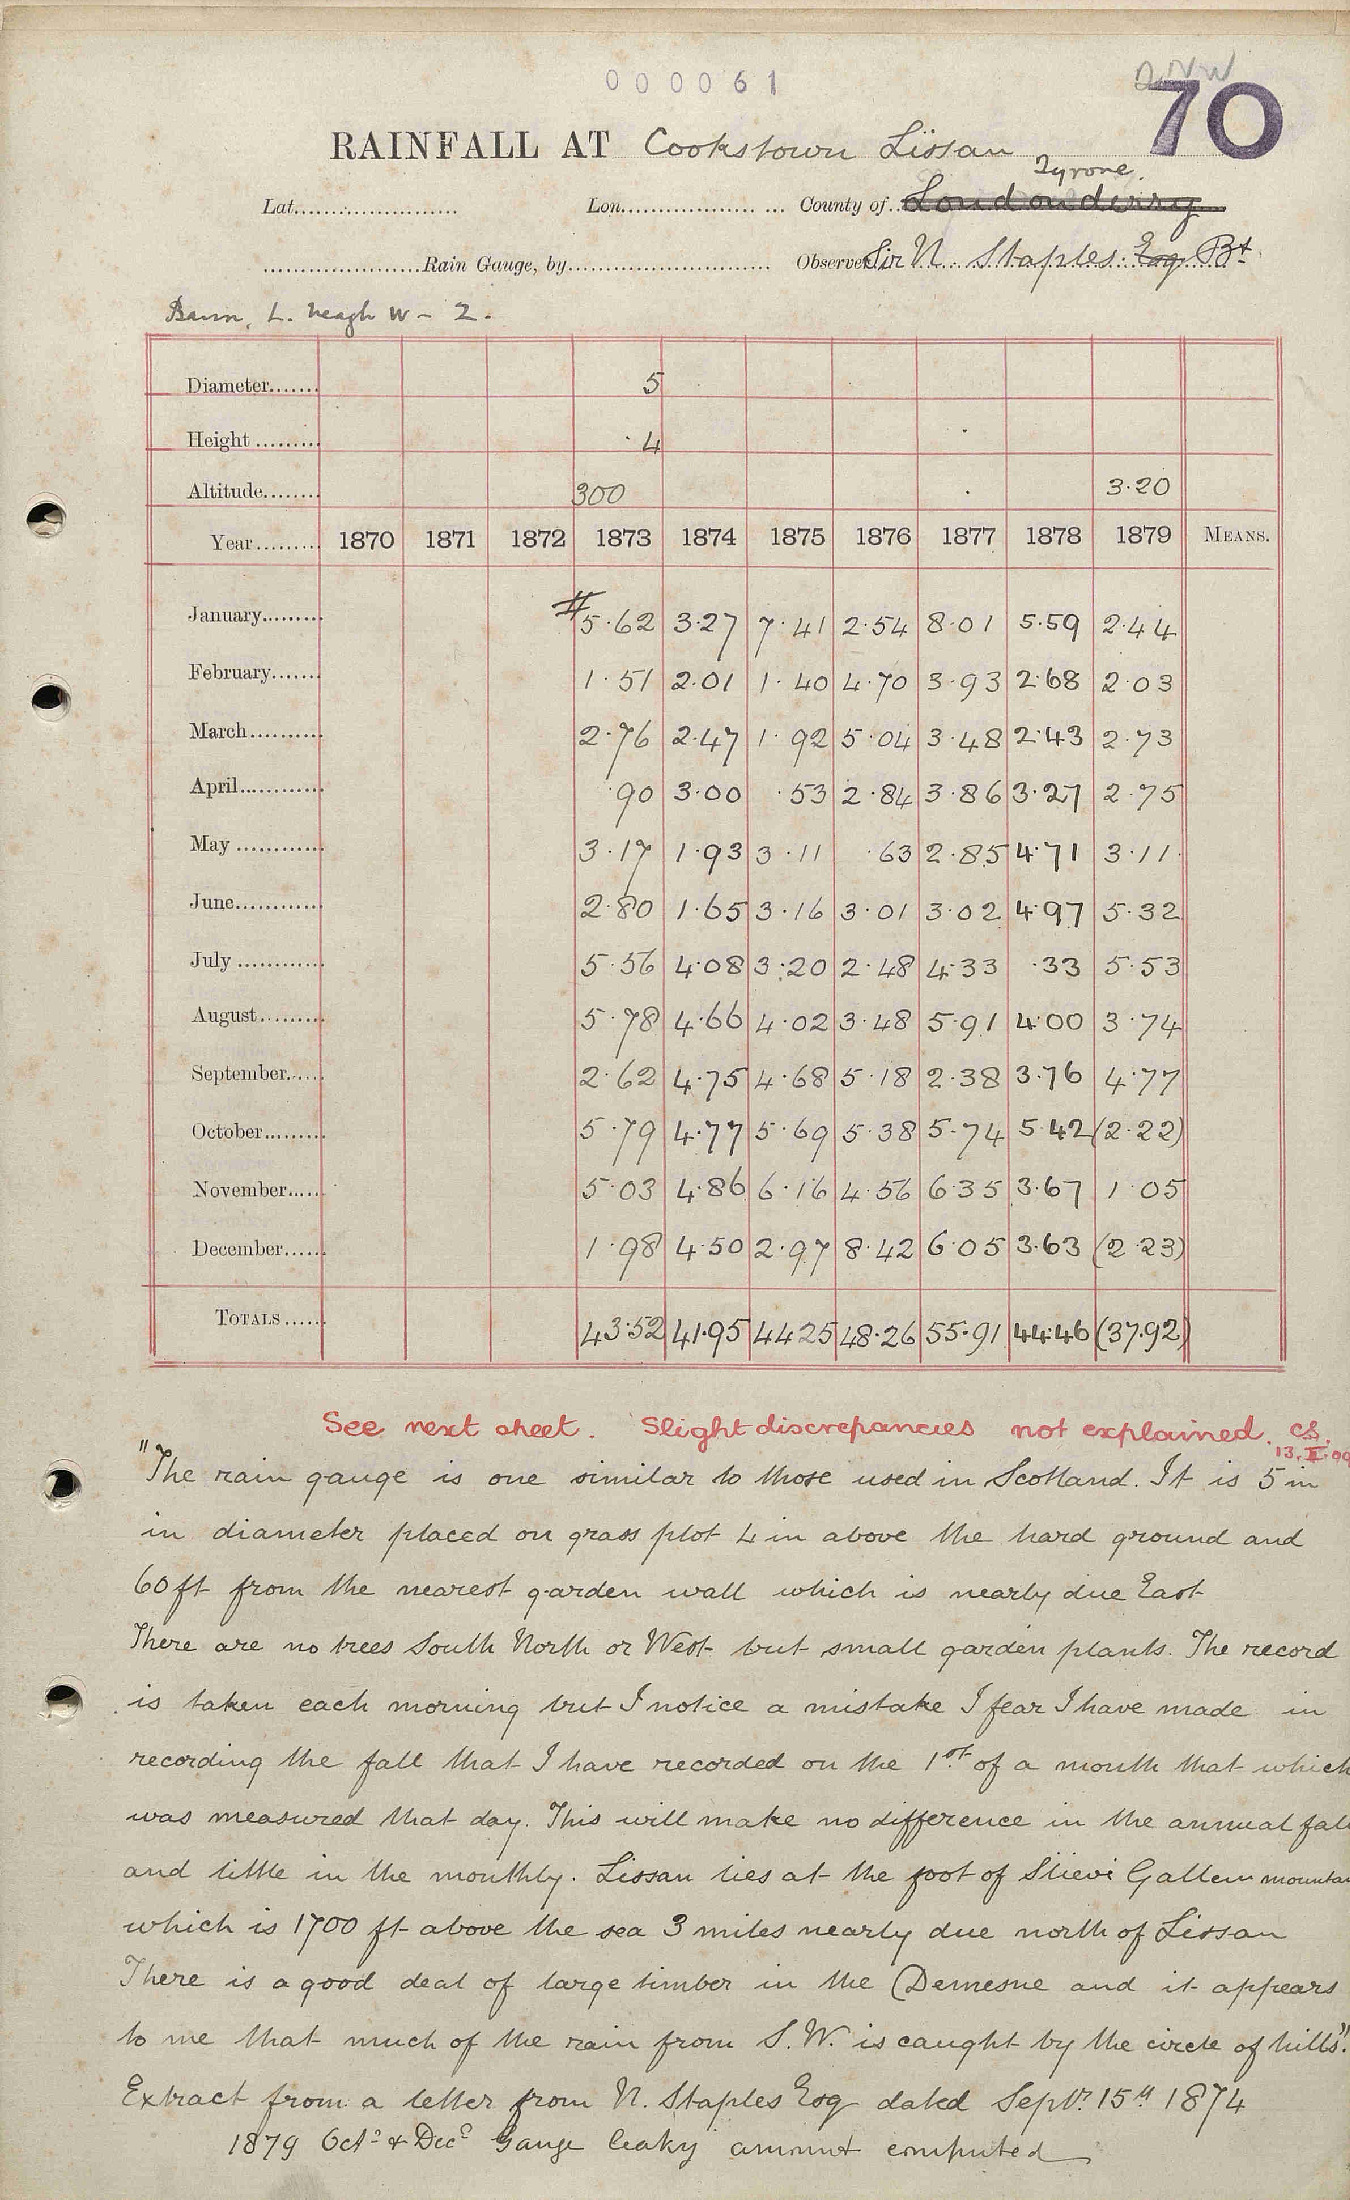 000061
70
RAINFALL AT Cookstown Lissan
Tyrone.
Lat. Lon. County of Londonderry
Rain Gauge, by Observer Sir N. Staples Esq Bt
Bann, L. Neagh W - 2.
Diameter 5
Height 4
Altitude 300 3.20
Year 1870 1871 1872 1873 1874 1875 1876 1877 1878 1879 MEANS.
January # 5.62 3.27 7.41 2.54 8.01 5.59 2.44
February 1.51 2.01 1.40 4.70 3.93 2.68 2.03
March 2.76 2.47 1.92 5.04 3.48 2.43 2.73
April .90 3.00 .53 2.84 3.86 3.27 2.75
May 3.17 1.93 3.11 .63 2.85 4.71 3.11
June 2.80 1.65 3.16 3.01 3.02 4.97 5.32
July 5.56 4.08 3.20 2.48 4.33 .33 5.53
August 5.78 4.66 4.02 3.48 5.91 4.00 3.74
September 2.62 4.75 4.68 5.18 2.38 3.76 4.77
October 5.79 4.77 5.69 5.38 5.74 5.42 (2.22)
November 5.03 4.86 6.16 4.56 6.35 3.67 1.05
December 1.98 4.50 2.97 8.42 6.05 3.63 (2.23)
TOTALS 43.52 41.95 44.25 48.26 55.91 44.46 (37.92)
See next sheet. Slight discrepancies not explained. CS.
13.II.09
"The rain gauge is one similar to those used in Scotland. It is 5 in
in diameter placed on grass plot 4 in above the hard ground and
60 ft from the nearest garden wall which is nearly due East
There are no trees South North or West but small garden plants. The record
is taken each morning but I notice a mistake I fear I have made in
recording the fall that I have recorded on the 1st of a month that which
was measured that day. This will make no difference in the annual fall
and little in the monthly. Lissan lies at the foot of Slievi Gallem mountai
which is 1700 ft above the sea 3 miles nearly due north of Lissan
There is a good deal of large timber in the Demesne and it appears
to me that much of the rain from S.W. is caught by the circle of hills".
Extract from a letter from N. Staples Esq dated Septr 15th 1874
1879 Octr & Decr Gauge leaky amount computed